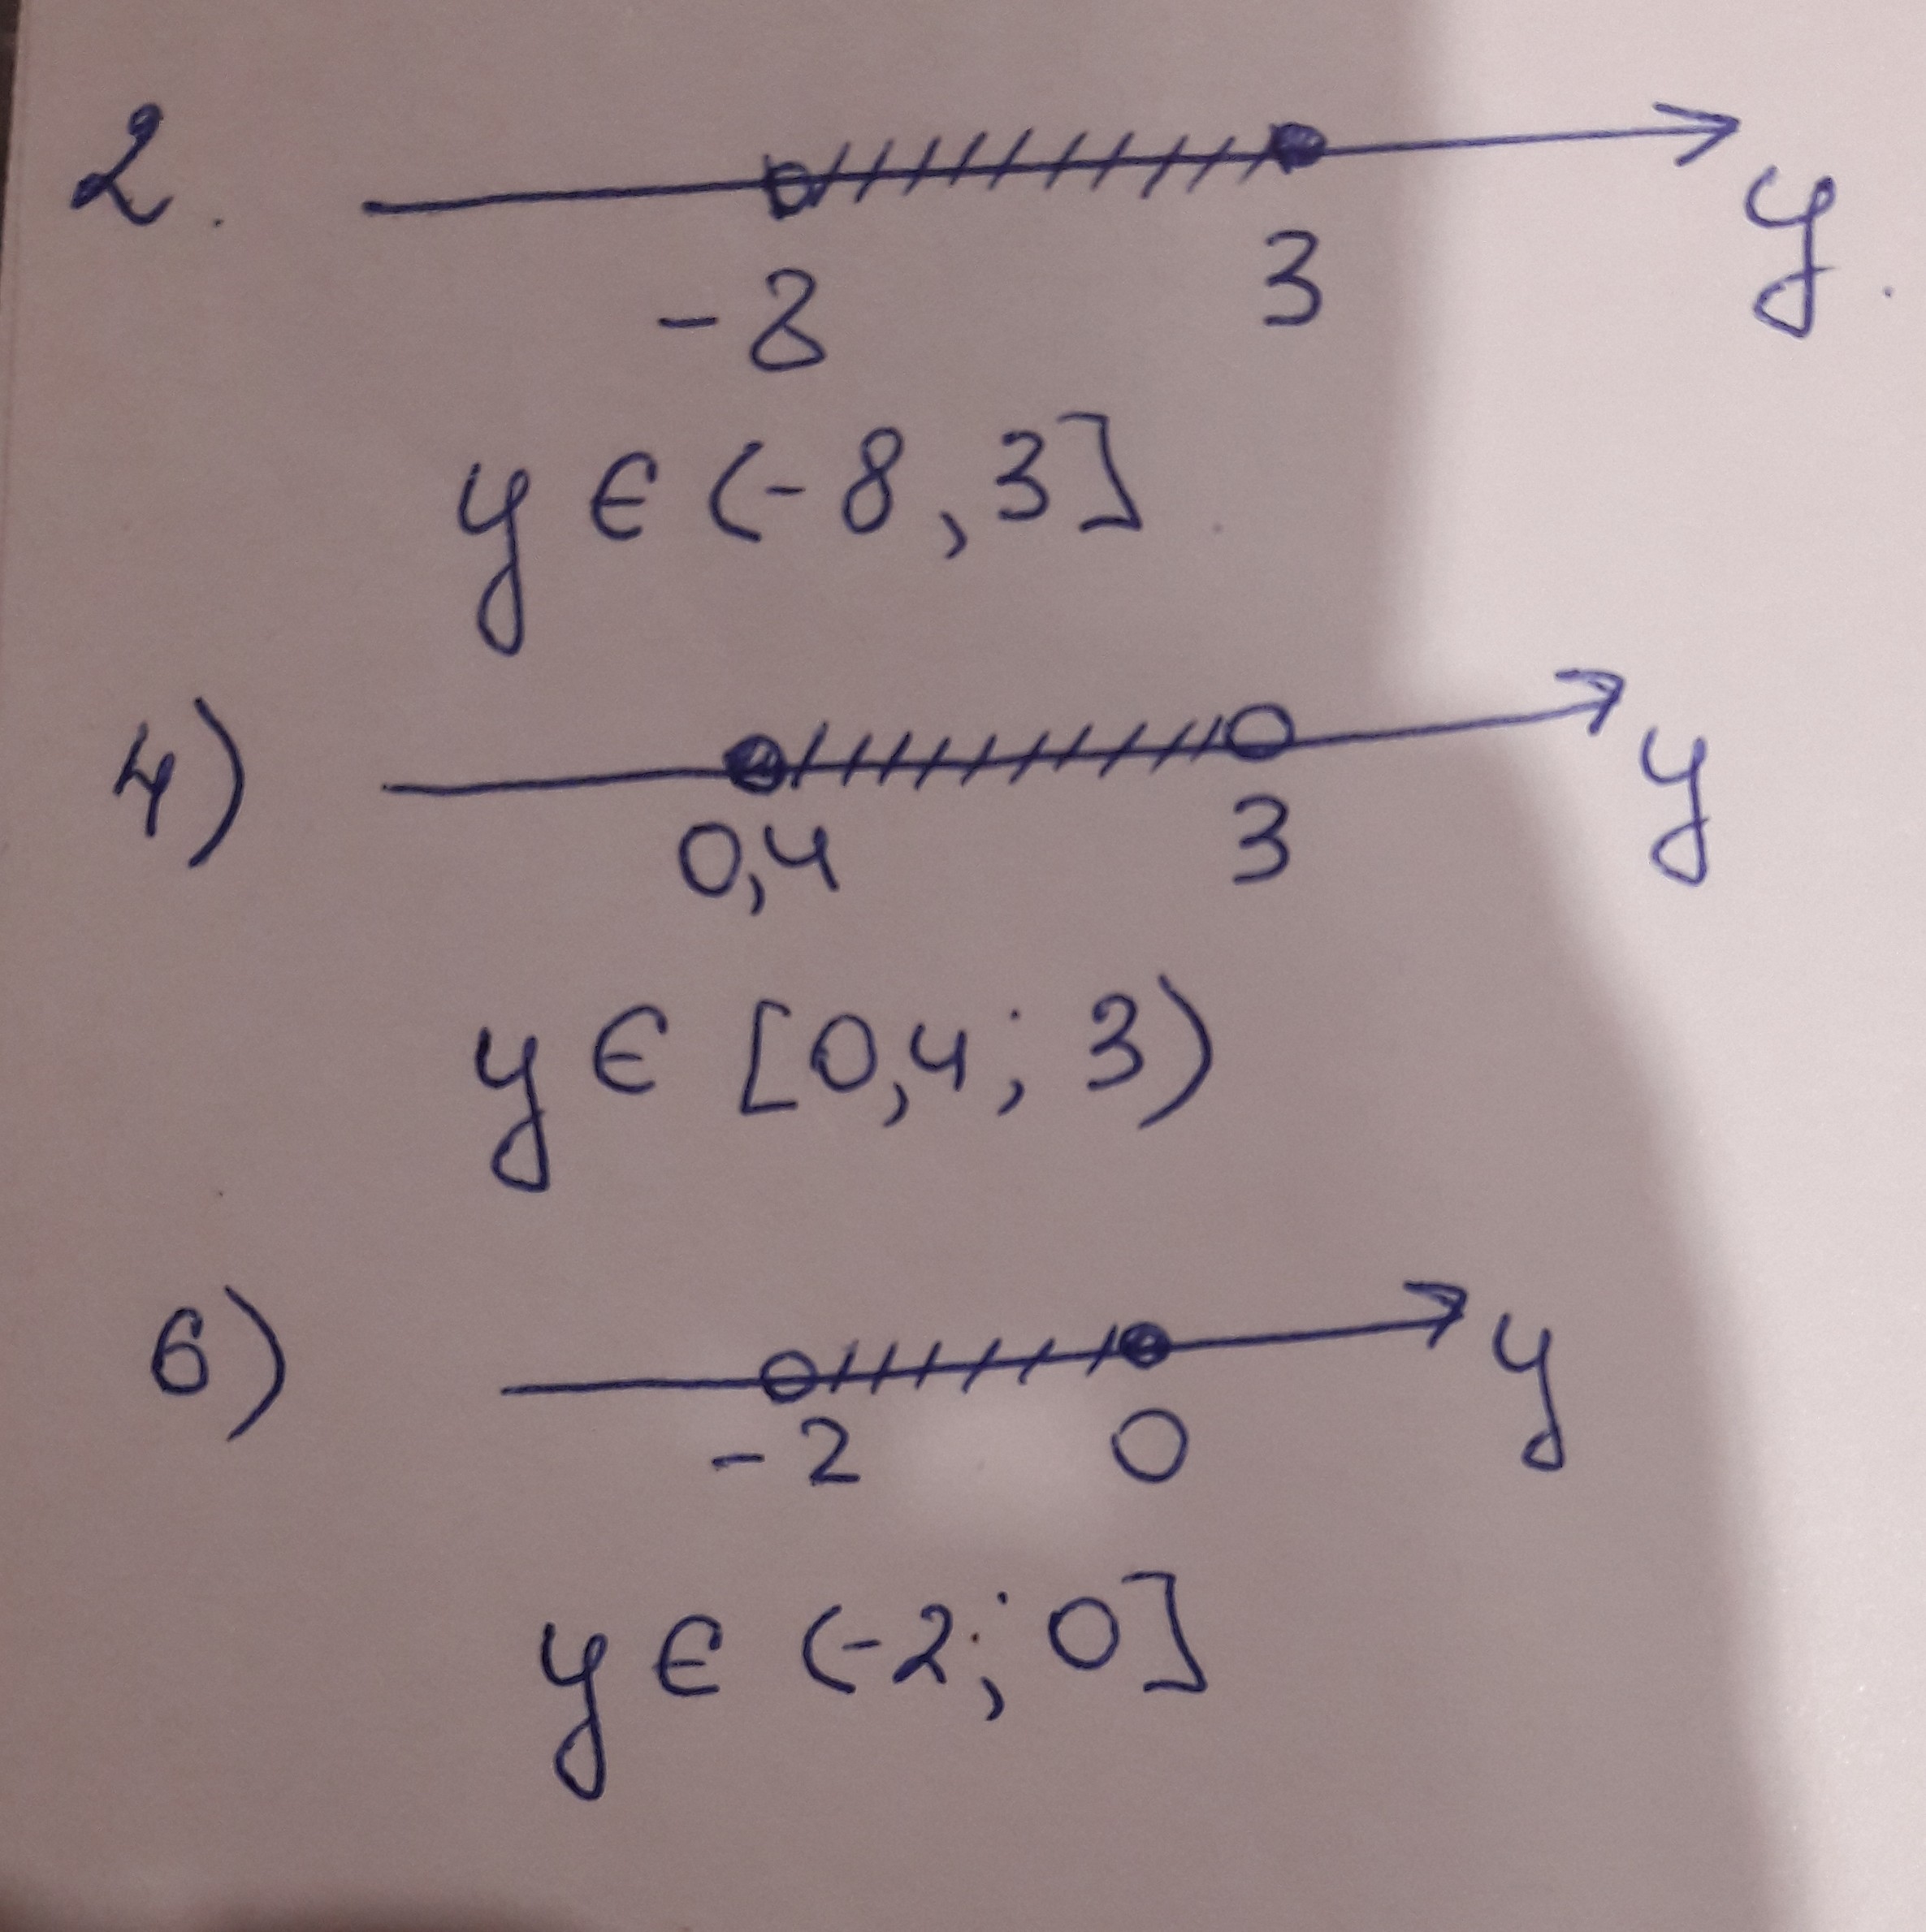 2.
-8 3 y.
y ∈ (-8, 3]
4)
0,4 3 y
y ∈ [0,4; 3)
6)
-2 0 y
y ∈ (-2; 0]